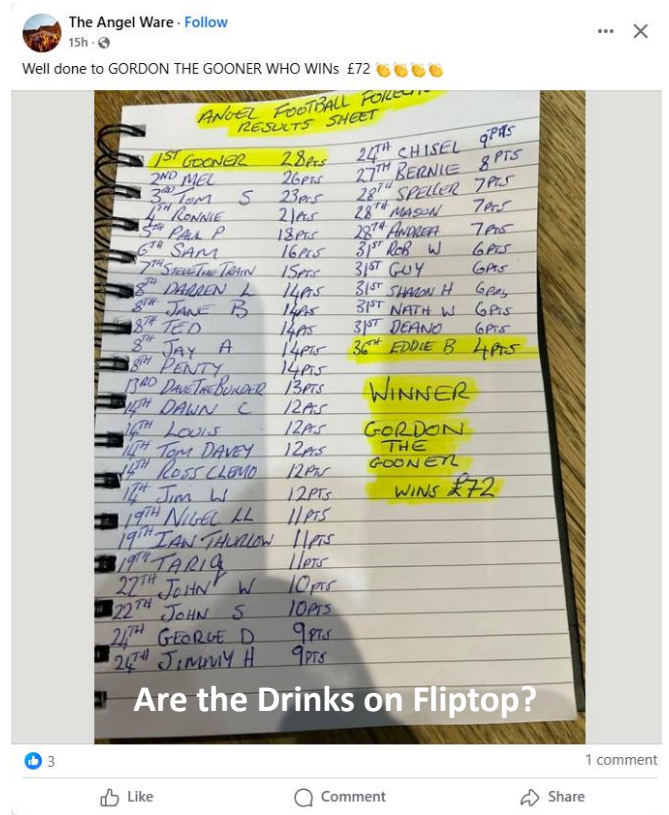 The Angel Ware · Follow
15h ·
Well done to GORDON THE GOONER WHO WINs £72 👏👏👏👏
ANGEL FOOTBALL FORECAST
RESULTS SHEET
1ST GOONER 28PTS
2ND MEL 26PTS
3RD TOM S 23PTS
4TH RONNIE 21PTS
5TH PAUL P 18PTS
6TH SAM 16PTS
7TH STEVE THE TRAIN 15PTS
8TH DARREN L 14PTS
8TH JANE B 14PTS
8TH TED 14PTS
8TH JAY A 14PTS
8TH PENTY 14PTS
13RD DAVE THE BUILDER 13PTS
14TH DAWN C 12PTS
14TH LOUIS 12PTS
14TH TOM DAVEY 12PTS
14TH ROSS CLEMO 12PTS
14TH JIM W 12PTS
19TH NIGEL LL 11PTS
19TH IAN THURLOW 11PTS
19TH TARIQ 11PTS
22TH JOHN W 10PTS
22TH JOHN S 10PTS
24TH GEORGE D 9PTS
24TH JIMMY H 9PTS
24TH CHISEL 9PTS
27TH BERNIE 8PTS
28TH SPELLER 7PTS
28TH MASON 7PTS
28TH ANDREA 7PTS
31ST ROB W 6PTS
31ST GUY 6PTS
31ST SHARON H 6PTS
31ST NATH W 6PTS
31ST DEANO 6PTS
36TH EDDIE B 4PTS
WINNER
GORDON
THE
GOONER
WINS £72
Are the Drinks on Fliptop?
3
1 comment
Like
Comment
Share